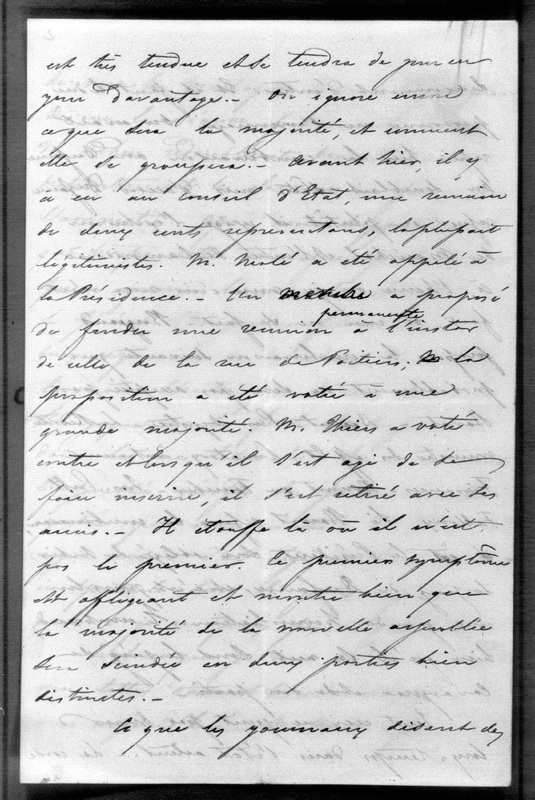 est très tendue et se tendra de jour en
jour davantage. — On ignore encore
ce que sera la majorité, et comment
elle se groupera. — Avant hier, il y
a eu au Conseil d'Etat, une réunion
de deux cents représentans, la plupart
légitimistes. M. Molé a été appelé à
la Présidence. — Un membre a proposé
de fonder une réunion permanente à l'instar
de celle de la rue de Poitiers, la
proposition a été votée à une
grande majorité. M. Thiers a voté
contre et lorsqu'il s'est agi de se
faire inscrire, il s'est retiré avec ses
amis. — Il étouffe là où il n'est
pas le premier. Ce premier symptôme
est affligeant et montre bien que
la majorité de la nouvelle assemblée
sera scindée en deux parties bien
distinctes. —
Ce que les journaux disent des